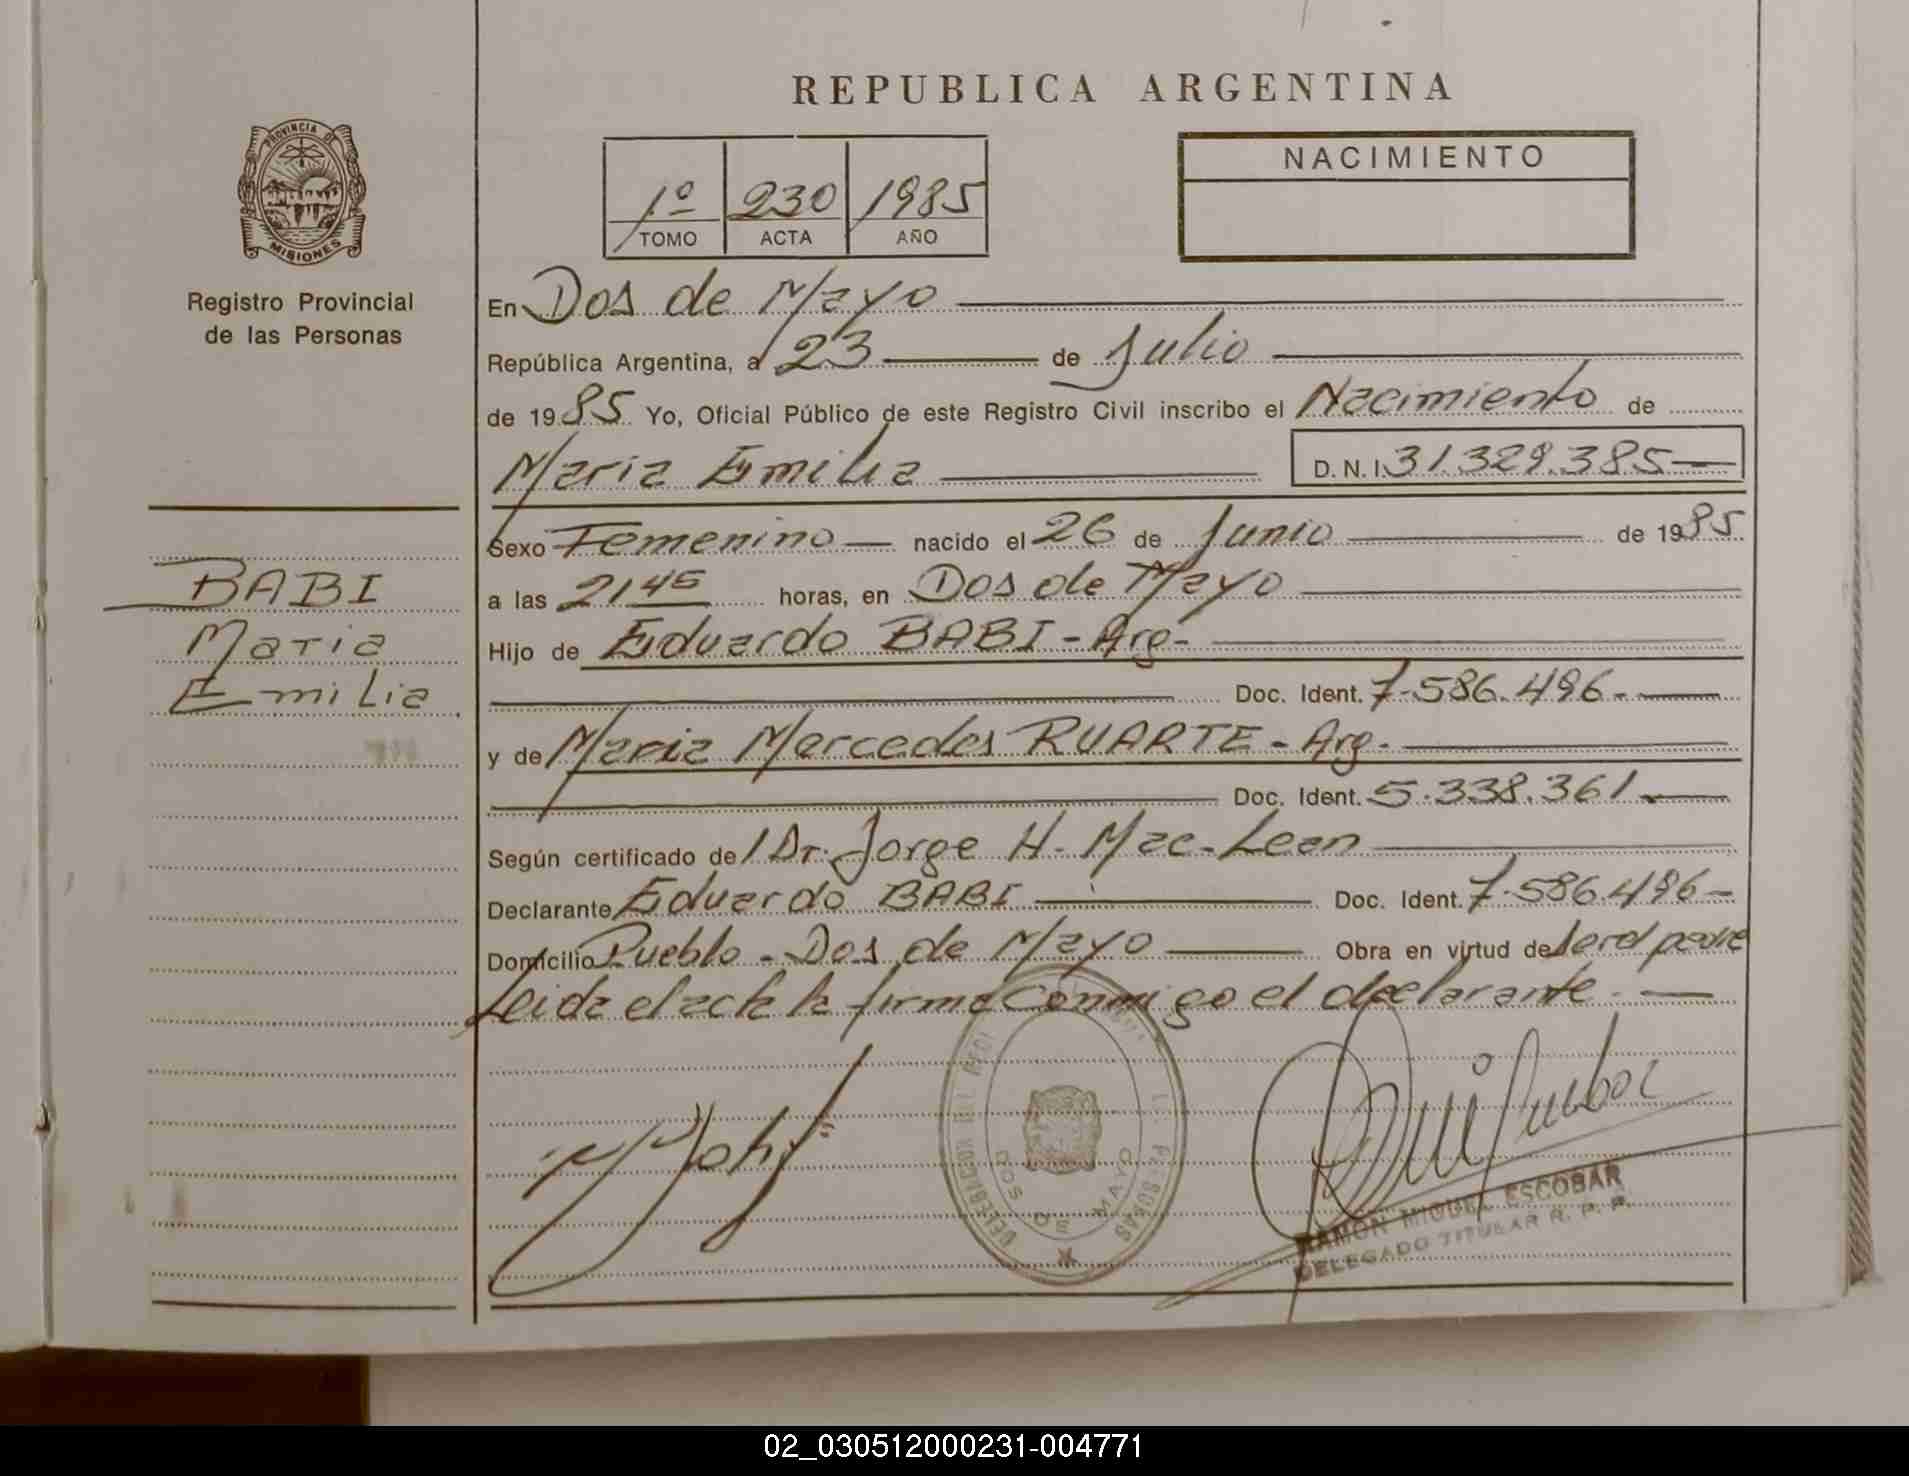 REPUBLICA ARGENTINA
PROVINCIA DE
MISIONES
Registro Provincial
de las Personas
1º 230 1985
TOMO ACTA AÑO
NACIMIENTO
En Dos de Mayo
República Argentina, a 23 de Julio
de 1985 Yo, Oficial Público de este Registro Civil inscribo el Nacimiento de
Maria Emilia D.N.I. 31.329.385
Sexo Femenino nacido el 26 de Junio de 1985
a las 2145 horas, en Dos de Mayo
Hijo de Eduardo BABI - Arg-
Doc. Ident. 7.586.496.
y de Maria Mercedes RUARTE - Arg.
Doc. Ident. 5.338.361
Según certificado del Dr. Jorge H. Mac-Lean
Declarante Eduardo BABI Doc. Ident. 7.586.496
Domicilio Pueblo - Dos de Mayo Obra en virtud de ser el padre
Leida el acta la firma conmigo el declarante.
BABI
Maria
Emilia
DOS DE MAYO
RAMON MIGUEL ESCOBAR
DELEGADO TITULAR R. P. P.
02_030512000231-004771